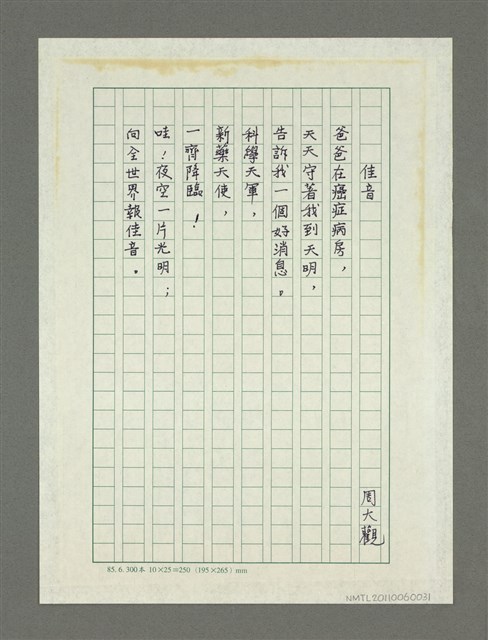 佳音
周大觀
爸爸在癌症病房，
天天守著我到天明，
告訴我一個好消息。
科學天軍，
新藥天使，
一齊降臨！
哇！夜空一片光明；
向全世界報佳音。
85. 6. 300本 10×25＝250 （195×265）mm
NMTL20110060031